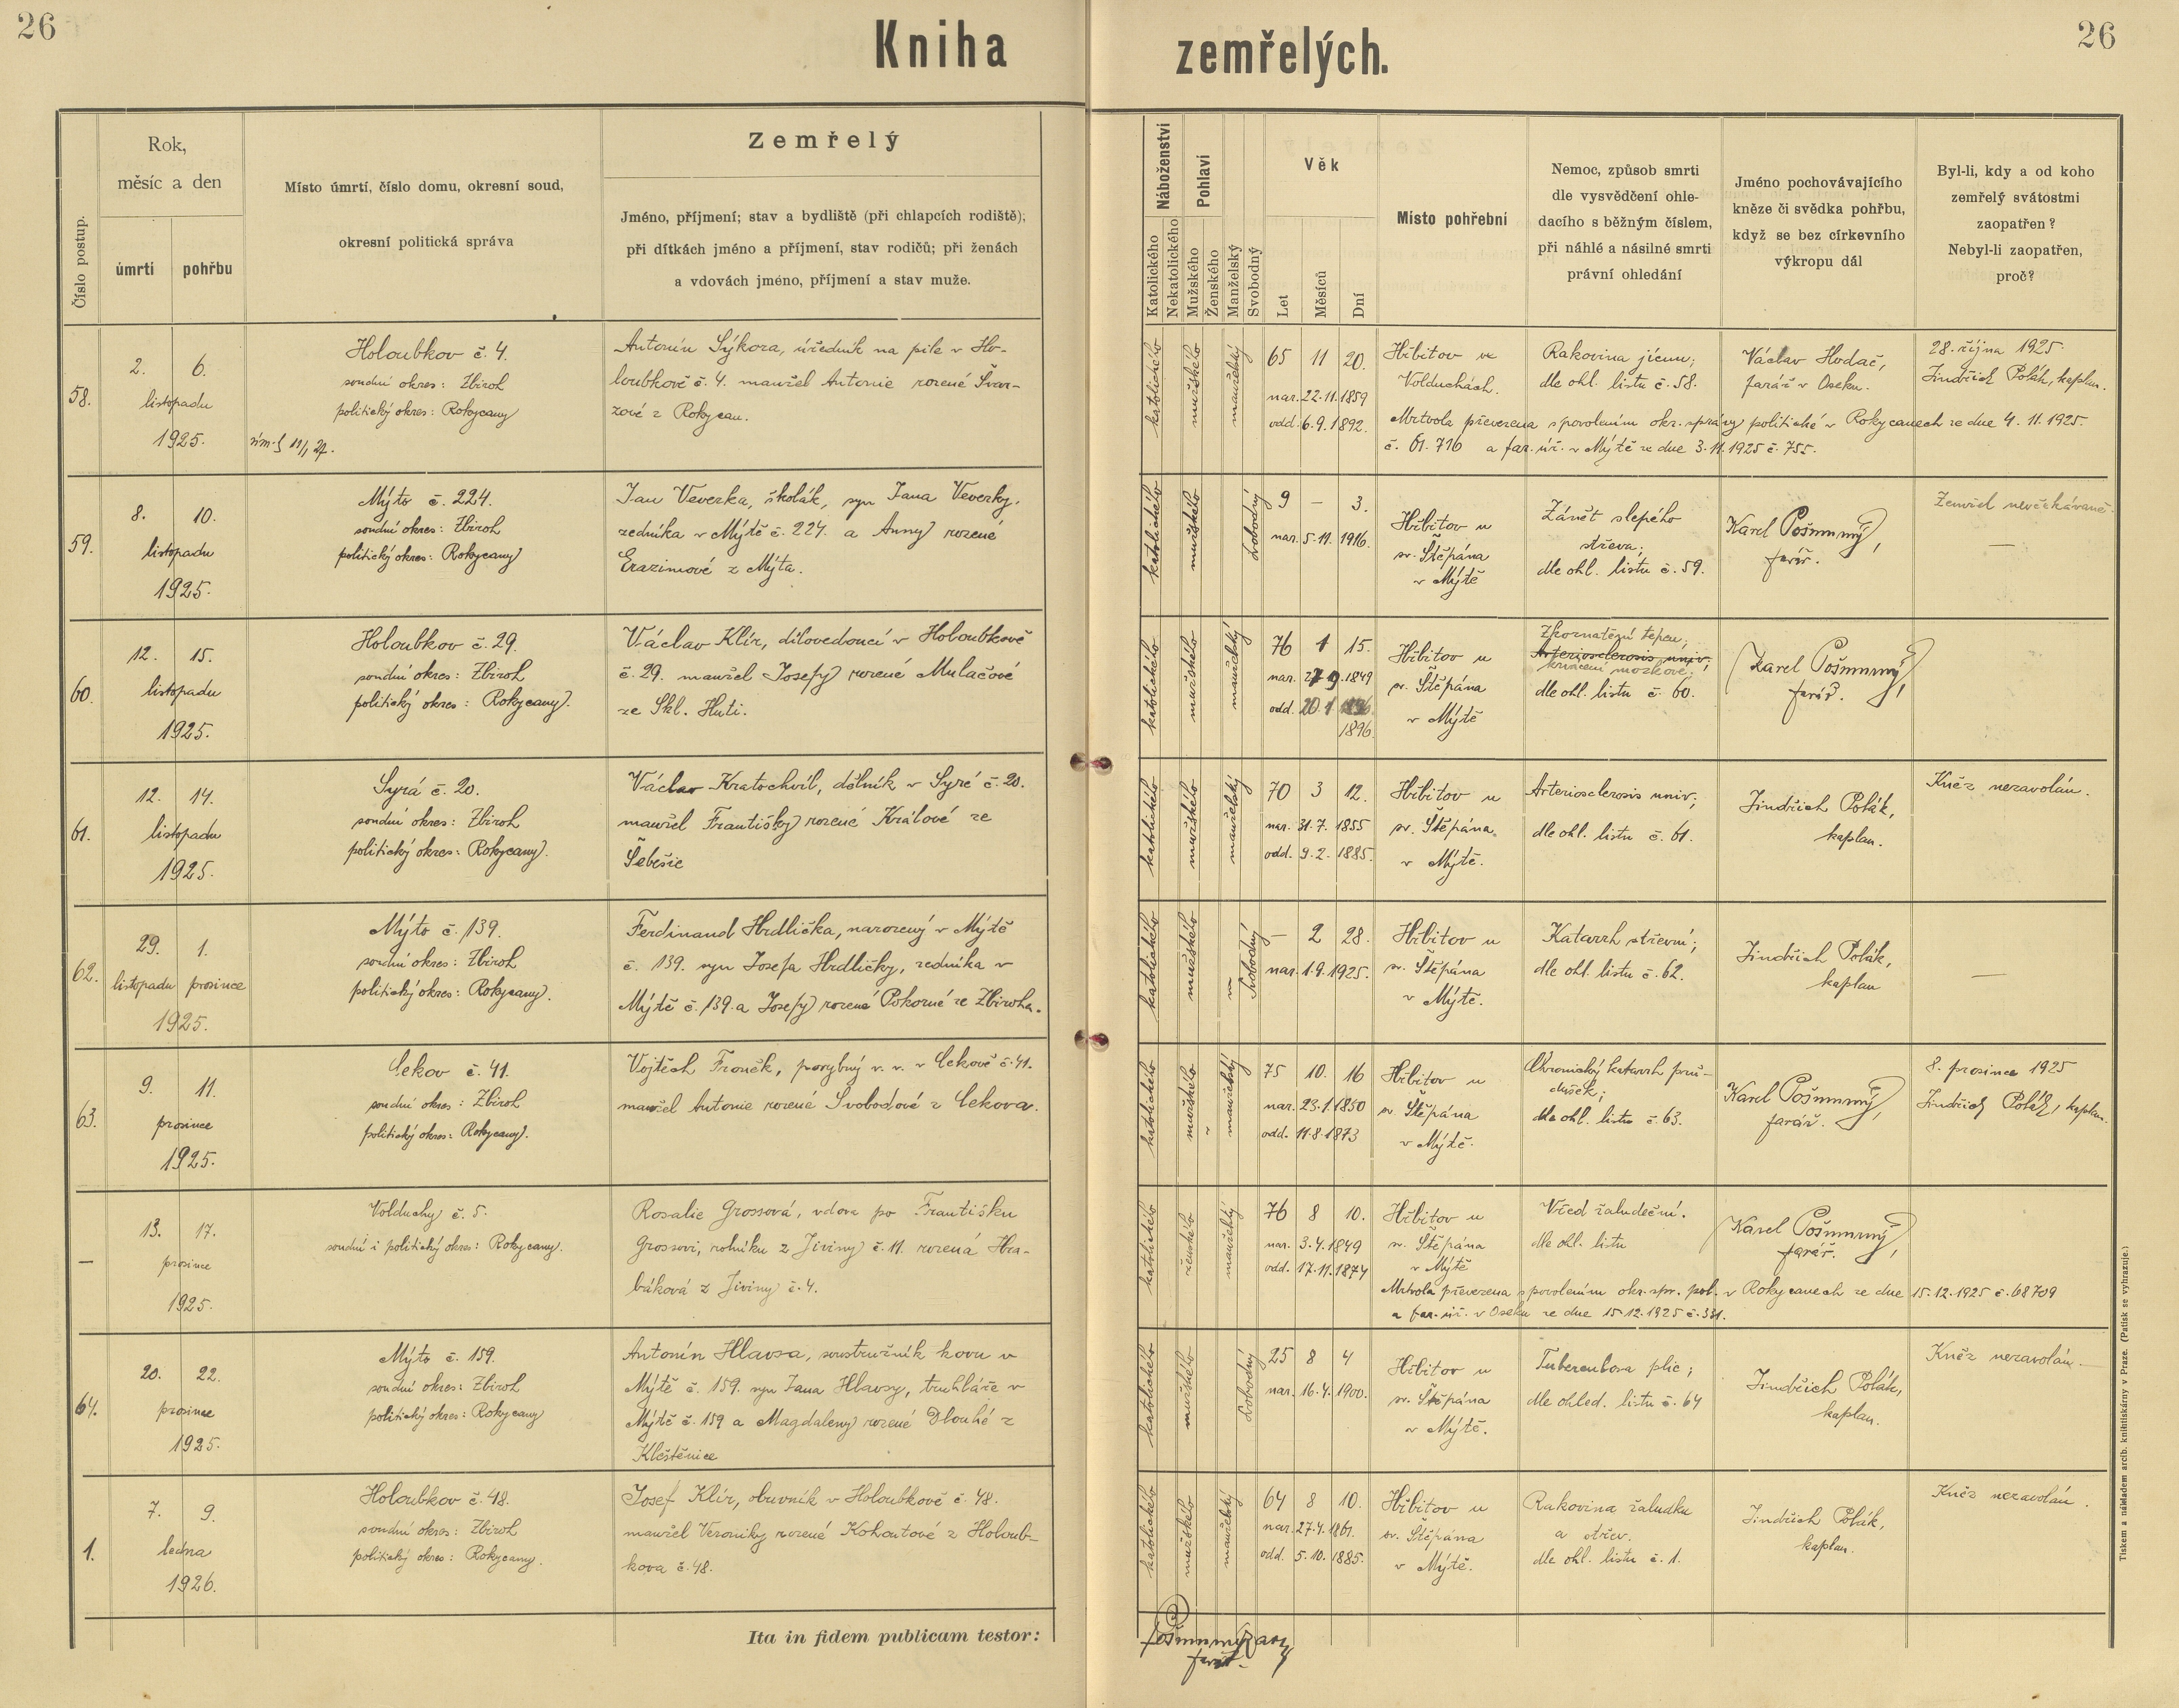 26
Kniha zemřelých.
26
Číslo postup.
Rok,
měsíc a den
úmrtí
pohřbu
Místo úmrtí, číslo domu, okresní soud,
okresní politická správa
Zemřelý
Jméno, příjmení; stav a bydliště (při chlapcích rodiště);
při dítkách jméno a příjmení, stav rodičů; při ženách
a vdovách jméno, příjmení a stav muže.
Náboženství
Katolického
Nekatolického
Pohlaví
Mužského
Ženského
Manželský
Svobodný
Věk
Let
Měsíců
Dní
Místo pohřební
Nemoc, způsob smrti
dle vysvědčení ohle-
dacího s běžným číslem,
při náhlé a násilné smrti
právní ohledání
Jméno pochovávajícího
kněze či svědka pohřbu,
když se bez církevního
výkropu dál
Byl-li, kdy a od koho
zemřelý svátostmi
zaopatřen?
Nebyl-li zaopatřen,
proč?
58.
2. 6.
listopadu
1925.
Holoubkov č. 4.
soudní okres: Zbiroh
politický okres: Rokycany
Antonín Sýkora, úředník na pile v Ho-
loubkově č. 4. manžel Antonie rozené Švar-
zové z Rokycan.
katolického
mužského
manželský
65 11 20.
nar. 22.11.1859
odd. 6.9.1892.
Hřbitov ve
Volduchách.
Rakovina jícnu;
dle ohl. listu č. 58.
Václav Hodač,
farář v Oseku.
28. října 1925.
Jindřich Polák, kaplan.
Mrtvola převezena s povolením okr. správy politické v Rokycanech ze dne 4. 11. 1925.
č. 61.716 a far. úř. v Mýtě ze dne 3.11.1925 č. 755.
59.
8. 10.
listopadu
1925.
Mýto č. 224.
soudní okres: Zbiroh
politický okres: Rokycany
Jan Veverka, školák, syn Jana Veverky,
zedníka v Mýtě č. 224. a Anny rozené
Erazimové z Mýta.
katolického
mužského
svobodný
9 — 3.
nar. 5.11.1916.
Hřbitov u
sv. Štěpána
v Mýtě
Zánět slepého
střeva;
dle ohl. listu č. 59.
Karel Pošmurný,
farář.
Zemřel neočekávaně.
—
60.
12. 15.
listopadu
1925.
Holoubkov č. 29.
soudní okres: Zbiroh
politický okres: Rokycany.
Václav Klír, dílovedoucí v Holoubkově
č. 29. manžel Josefy rozené Mulačové
ze Skl. Huti.
katolického
mužského
manželský
76 1 15.
nar. 27 9.1849
odd. 20.1
1896.
Hřbitov u
sv. Štěpána
v Mýtě
Zkornatění tepen;
Arteriosclerosis univ;
krvácení mozkové;
dle ohl. listu č. 60.
Karel Pošmurný,
farář.
61.
12. 14.
listopadu
1925.
Syrá č. 20.
soudní okres: Zbiroh
politický okres: Rokycany.
Václav Kratochvíl, dělník v Syré č. 20.
manžel Františky rozené Králové ze
Šebešic
katolického
mužského
manželský
70 3 12.
nar. 31.7. 1855
odd. 9.2. 1885.
Hřbitov u
sv. Štěpána
v Mýtě.
Arteriosclerosis univ;
dle ohl. listu č. 61.
Jindřich Polák,
kaplan.
Kněz nezavolán.
62.
29. 1.
listopadu prosince
1925.
Mýto č. 139.
soudní okres: Zbiroh
politický okres: Rokycany.
Ferdinand Hrdlička, narozený v Mýtě
č. 139. syn Josefa Hrdličky, zedníka v
Mýtě č. 139. a Josefy rozené Pokorné ze Zbiroha.
katolického
mužského
svobodný
— 2 28.
nar. 1.9.1925.
Hřbitov u
sv. Štěpána
v Mýtě.
Katarrh střevní;
dle ohl. listu č. 62.
Jindřich Polák,
kaplan
—
63.
9. 11.
prosince
1925.
Cekov č. 41.
soudní okres: Zbiroh
politický okres: Rokycany.
Vojtěch Froněk, porybný v. v. v Cekově č. 41.
manžel Antonie rozené Svobodové z Cekova.
katolického
mužského
manželský
75 10. 16
nar. 23.1.1850
odd. 11.8.1873
Hřbitov u
sv. Štěpána
v Mýtě.
Chronický katarrh prů-
dušek;
dle ohl. listu č. 63.
Karel Pošmurný,
farář.
8. prosince 1925
Jindřich Polák, kaplan.
—
13. 17.
prosince
1925.
Volduchy č. 5.
soudní i politický okres: Rokycany.
Rosalie Grossová, vdova po Františku
Grossovi, rolníku z Jiviny č. 11. rozená Hra-
báková z Jiviny č. 4.
katolického
ženského
manželský
76 8 10.
nar. 3.4.1849
odd. 17.11.1874
Hřbitov u
sv. Štěpána
v Mýtě
Vřed žaludeční.
dle ohl. listu
Karel Pošmurný,
farář.
Mrtvola převezena s povolením okr. spr. pol. v Rokycanech ze dne 15.12.1925 č. 68709
a far. úř. v Oseku ze dne 15.12.1925 č. 331.
64.
20. 22.
prosince
1925.
Mýto č. 159.
soudní okres: Zbiroh
politický okres: Rokycany
Antonín Hlavsa, soustružník kovu v
Mýtě č. 159. syn Jana Hlavsy, truhláře v
Mýtě č. 159 a Magdaleny rozené Dlouhé z
Kleštěnice
katolického
mužského
svobodný
25 8 4
nar. 16.4.1900.
Hřbitov u
sv. Štěpána
v Mýtě.
Tuberculosa plic;
dle ohled. listu č. 64
Jindřich Polák,
kaplan.
Kněz nezavolán.
1.
7. 9.
ledna
1926.
Holoubkov č. 48.
soudní okres: Zbiroh
politický okres: Rokycany.
Josef Klír, obuvník v Holoubkově č. 48.
manžel Veroniky rozené Kohoutové z Holoub-
kova č. 48.
katolického
mužského
manželský
64 8 10.
nar. 27.4.1861.
odd. 5.10.1885.
Hřbitov u
sv. Štěpána
v Mýtě.
Rakovina žaludku
a střev.
dle ohl. listu č. 1.
Jindřich Polák,
kaplan.
Kněz nezavolán.
Ita in fidem publicam testor:
farář.
Tiskem a nákladem arcib. knihtiskárny v Praze. (Patisk se vyhrazuje.)